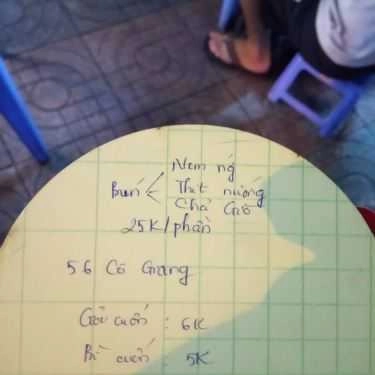 Nem ng
Bún < Thịt nướng
Chả Giò
25K/phần
56 Cô Giang
Gỏi cuốn : 6K
Bì cuốn : 5K